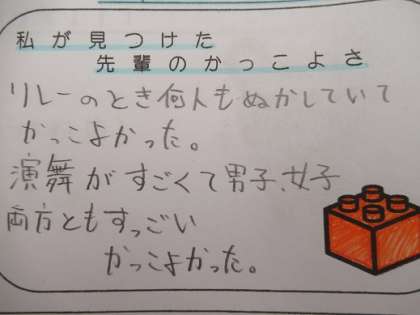 私が見つけた
先輩のかっこよさ
リレーのとき何人もぬかしていて
かっこよかった。
演舞がすごくて男子、女子
両方ともすっごい
かっこよかった。